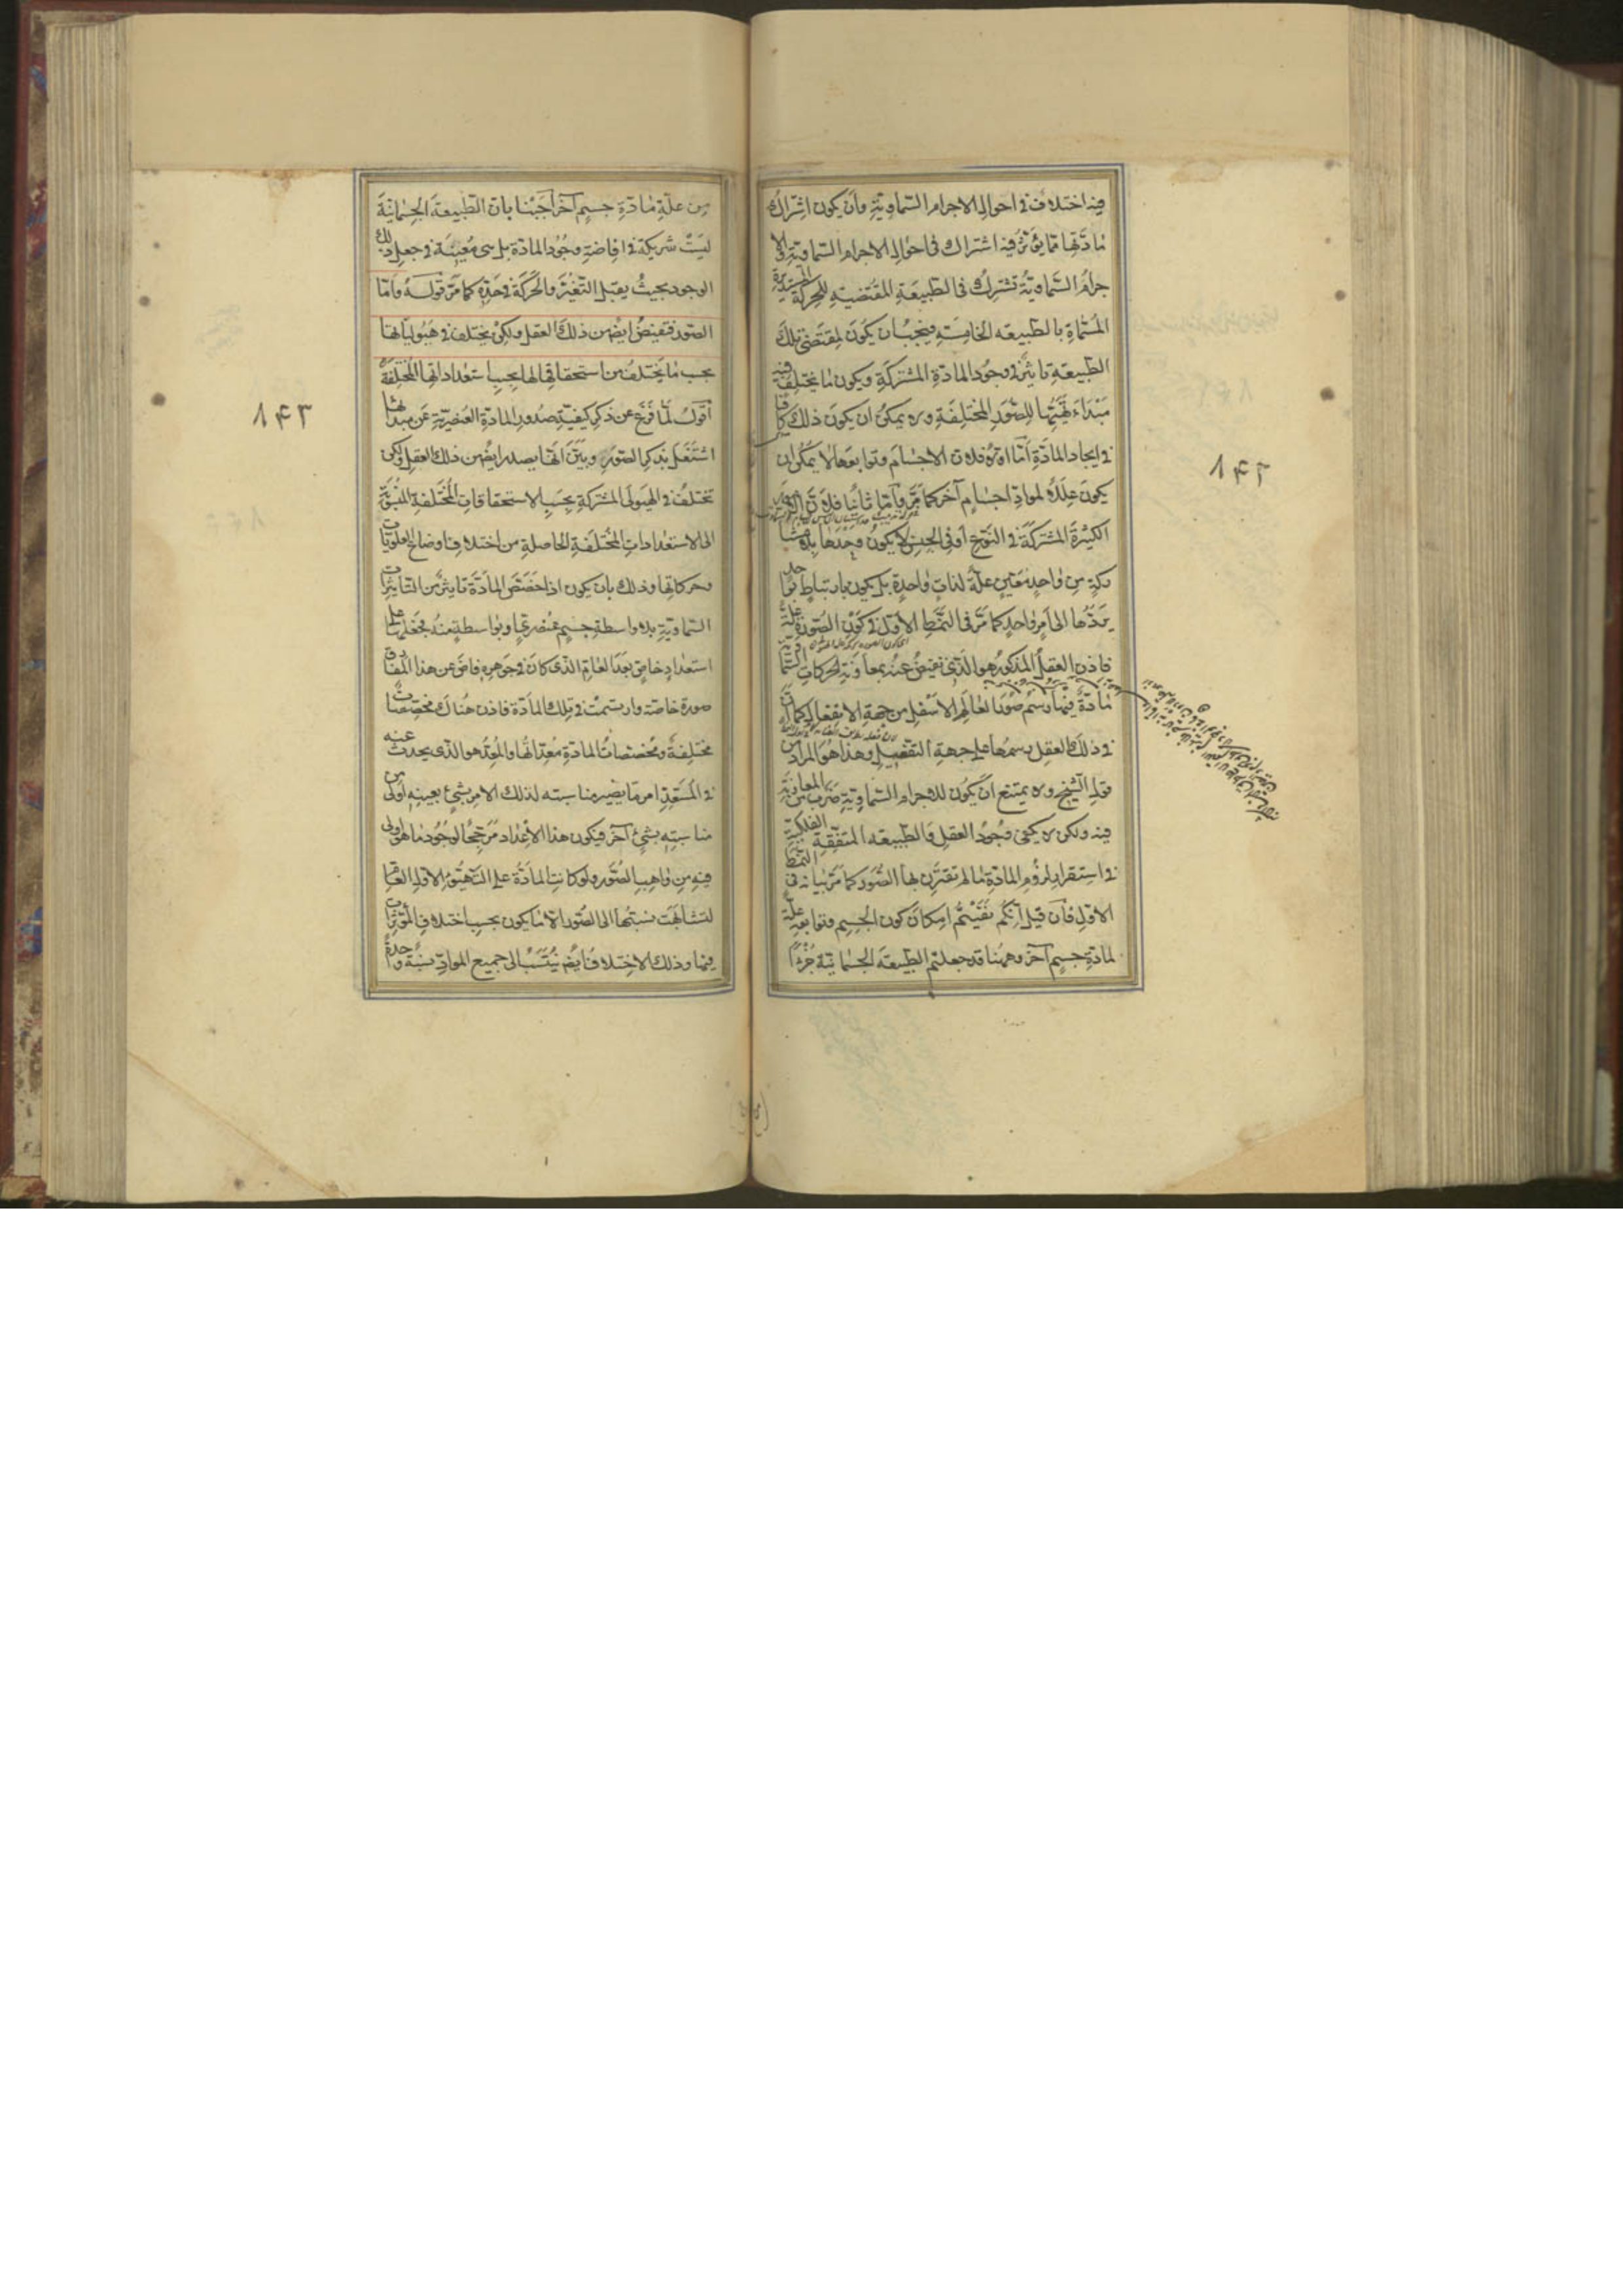 فيه اختلاف في احوال الاجرام السماوية وان يكون اشتراك
مادتها مما يؤثر فيه اشتراك في احوال الاجرام السماوية والا
جرام السماوية تشترك في الطبيعة المقتضية للحركة المستديرة
المسماة بالطبيعه الخامسة فيجب ان يكون لمقتضى تلك
الطبيعة تاثير في وجود المادة المشتركة ويكون ما يختلف فيه
مبداء تهيئها للصور المختلفة ولا يمكن ان يكون ذلك كافيا
في ايجاد المادة اما اولا فلان الاجسام وتوابعها لا يمكن ان
يكون علة لمواد اجسام آخر كما مر واما ثانيا فلان الامور
الكثيرة المشتركة في النوع او في الجنس لا يكون وحدها بلا مشا
ركة من واحد معين علة لذات واحدة بل يكون بارتباط بواحد
يردها الى امر واحد كما مر في النمط الاول في كون الصورة علة
فاذن العقل المذكور هو الذي تفيض عنه بمعاونة الحركات السما
مادة فيها رسم صور العالم الاسفل من جهة الانفعال كما ان
في ذلك العقل رسمها على جهة التفعيل وهذا هو المراد من
قول الشيخ ولا يمتنع ان يكون للاجرام السماوية ضرب من المعاونة
فيه ولكن لا يكفي وجود العقل والطبيعه المتفقة الفلكية
في استقرار لزوم المادة ما لم تقترن بها الصور كما مر بيانه في النمط
الاول فان قيل انكم نفيتم امكان كون الجسم وتوابعه علة
لمادة جسم آخر وههنا قد جعلتم الطبيعة الجسمانية جزءا
۱۴۲
من علة مادة جسم آخر اجبنا بان الطبيعة الجسمانية
ليست شريكة في افاضة وجود المادة بل هي معينة في جعل ذلك
الوجود بحيث يقبل التغير والحركة في حده كما مر قوله واما
الصور فتفيض ايضا من ذلك العقل ولكن يختلف في هيولياتها
بحسب ما يختلف من استحقاقها لها بحسب استعداداتها المختلفة
اقول لما فرغ عن ذكر كيفية صدور المادة العنصرية عن مبدائها
اشتغل بذكر الصور وبين انها يصدر ايضا من ذلك العقل ولكن
تختلف في الهيولى المشتركة بحسب الاستحقاقات المختلفة المنسوبة
الى الاستعدادات المختلفة الحاصلة من اختلاف اوضاع العلويات
وحركاتها وذلك بان يكون اذا خصص المادة تاثير من التاثيرات
السماوية بلا واسطة جسم عنصري او بواسطة منه فجعلها على
استعداد خاص بعد العام الذي كان في جوهره فاض عن هذا المفارق
صورة خاصة وارتسمت في تلك المادة فاذن هناك مخصصات
مختلفة ومخصصات المادة معداتها والمعد هو الذي يحدث عنه
في المستعد امر ما يصير مناسبته لذلك الامر بشيء بعينه اولى من
مناسبته بشيء آخر فيكون هذا الاعداد مرجحا لوجود ما هو اولى
فيه من واهب الصور ولو كانت المادة على التهيؤ الاول العام
لتشابهت نسبتها الى الصور الا ما يكون بحسب اختلاف المؤثرات
فيها وذلك الاختلاف ايضا ينتسب الى جميع المواد نسبة واحدة
۱۴۳